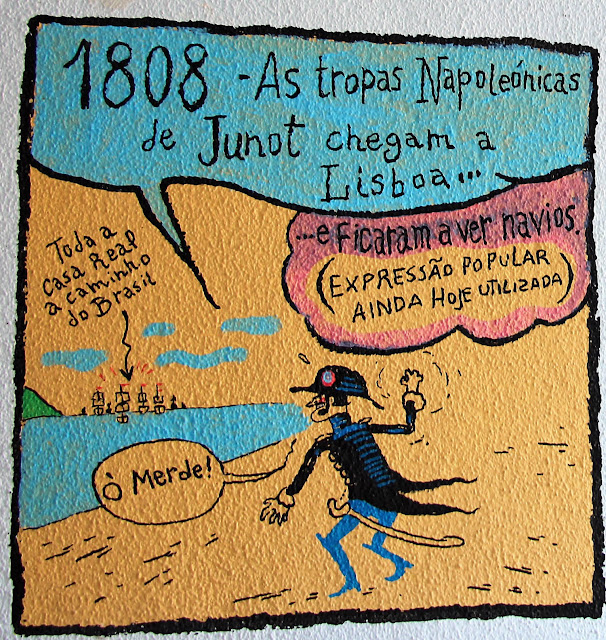 1808 - As tropas Napoleónicas
de Junot chegam a
Lisboa...
...e ficaram a ver navios.
(EXPRESSÃO POPULAR
AINDA HOJE UTILIZADA)
Toda a
Casa Real
a caminho
do Brasil
Ò Merde!